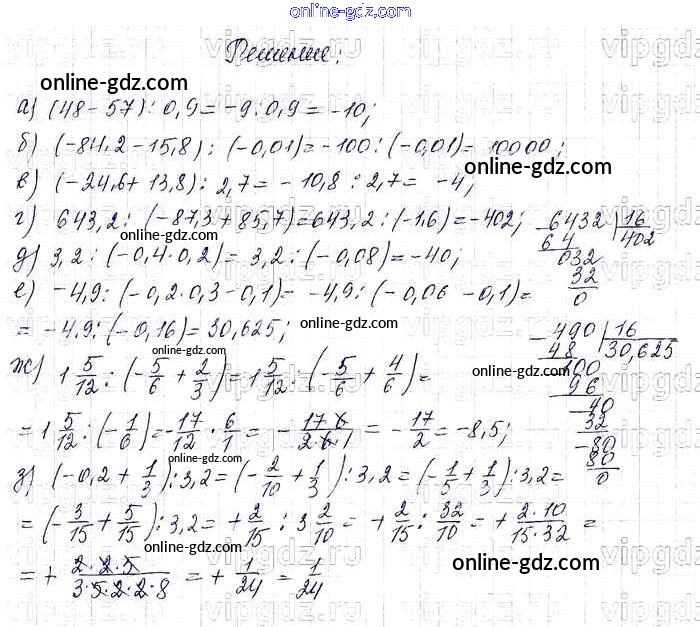 online-gdz.com
Решение:
online-gdz.com
а) (48-57) : 0,9 = -9 : 0,9 = -10;
б) (-84,2-15,8) : (-0,01) = -100 : (-0,01) = 10000;
online-gdz.com
в) (-24,6+13,8) : 2,7 = -10,8 : 2,7 = -4;
г) 643,2 : (-87,3+85,7) = 643,2 : (-1,6) = -402;
6432 | 16
64 402
032
32
0
online-gdz.com
д) 3,2 : (-0,4·0,2) = 3,2 : (-0,08) = -40;
е) -4,9 : (-0,2·0,3-0,1) = -4,9 : (-0,06-0,1) =
= -4,9 : (-0,16) = 30,625;
online-gdz.com
490 | 16
48 30,625
100
96
40
32
80
80
0
online-gdz.com
ж) 1 5/12 : (-5/6 + 2/3) = 1 5/12 : (-5/6 + 4/6) =
= 1 5/12 : (-1/6) = -17/12 · 6/1 = -17·6/2·6·1 = -17/2 = -8,5;
online-gdz.com
з) (-0,2 + 1/3) : 3,2 = (-2/10 + 1/3) : 3,2 = (-1/5 + 1/3) : 3,2 =
= (-3/15 + 5/15) : 3,2 = +2/15 : 3 2/10 = +2/15 : 32/10 = +2·10/15·32 =
online-gdz.com
online-gdz.com
= + 2·2·5/3·5·2·2·8 = + 1/24 = 1/24
online-gdz.com
vipgdz